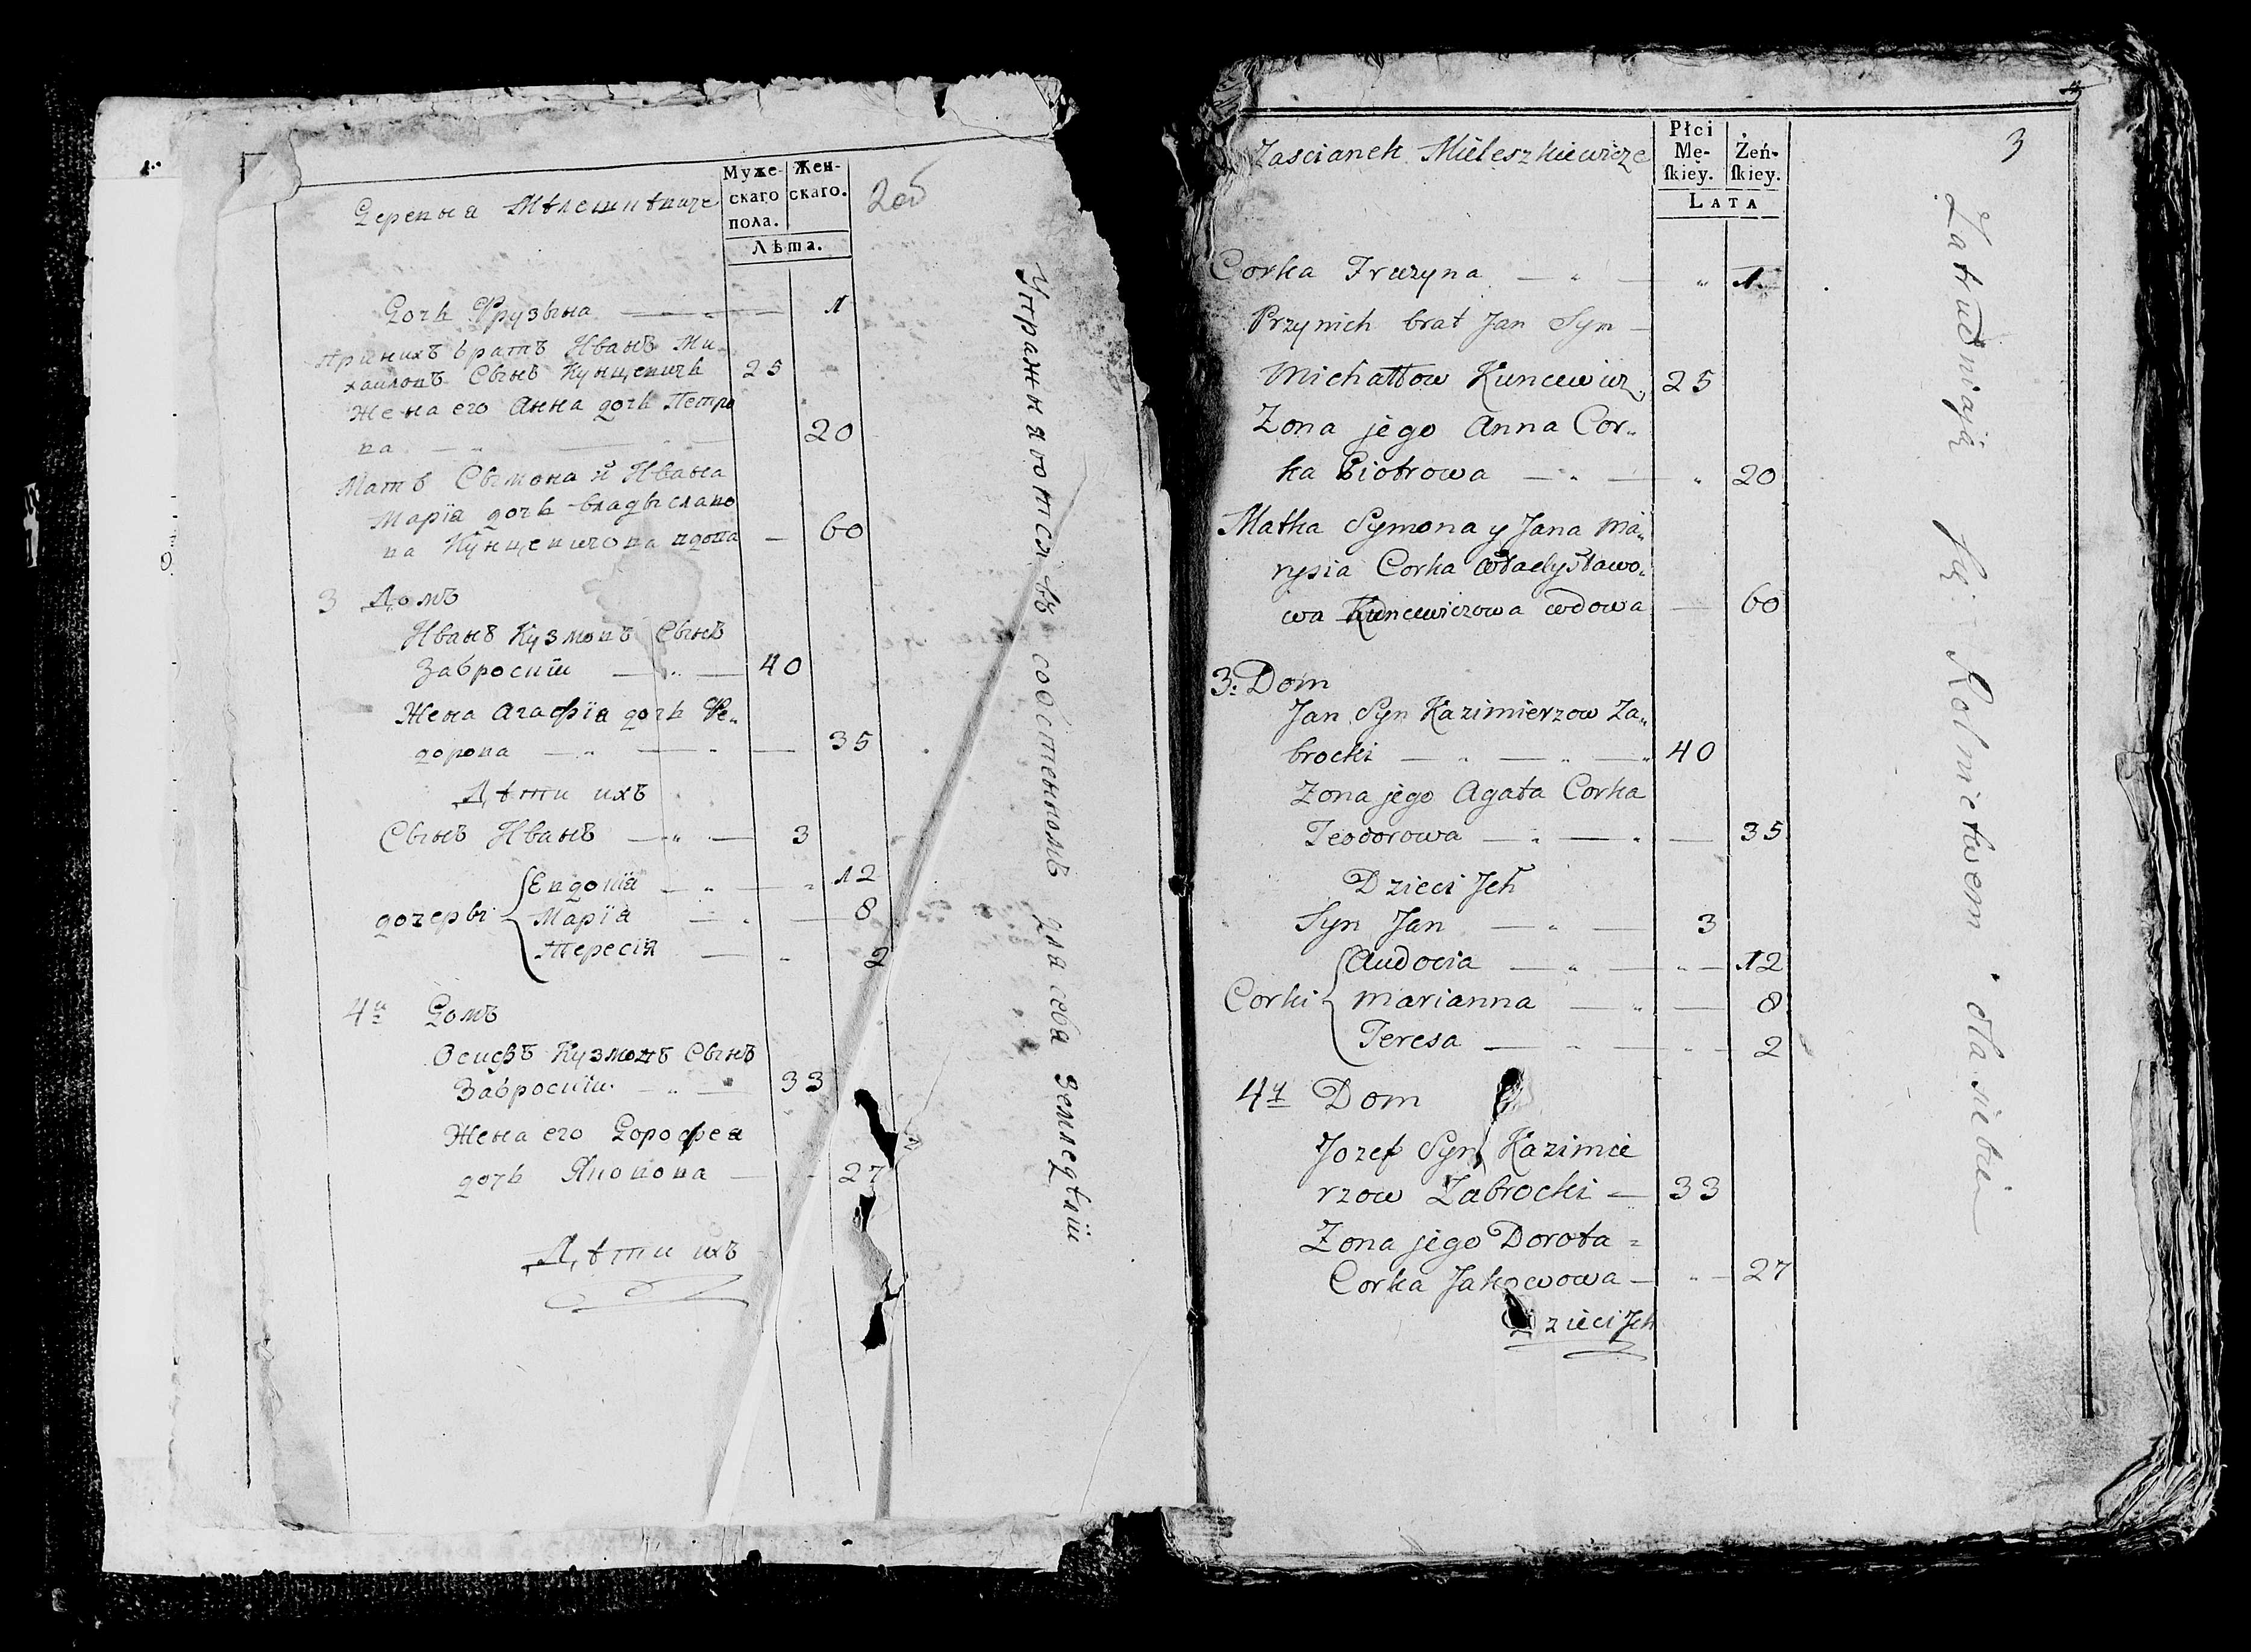 Деревня Мѣлешкѣвиче
Муже-
скаго
пола.
Жен-
скаго.
Лѣта.
2об
Дочь Фрузына — „ — 1
При нихъ братъ Иванъ Ми-
хаиловъ Сынъ Кунцевичь 25
Жена его Анна дочь Петро
ва — „ — 20
Мать Сымона и Ивана
Марїя дочь владыславо
ва Кунцевичова вдова — 60
3 Домъ
Иванъ Кузмовъ Сынъ
Заброскїи — „ — 40
Жена Агафїя дочь Фе„
дорова — „ — „ — 35
Дѣти ихъ
Сынъ Иванъ — „ — 3
дочеры
Евдокїя — „ — „ 12
Марїя — „ — 8
Тересїя — „ 2
4й Домъ
Осифъ Кузмовъ Сынъ
Заброскїи — „ — 33
Жена его Дорофея
дочь Якововa — „ 27
Дѣти ихъ
Упражняются въ собственномъ для себя земледѣлїи
Zascianek Mieleszkiewicze
Płci
Mę-
ſkiey.
Żeń-
ſkiey.
LATA
3
Corka Fruzyna — „ — „ 1
Przy nich brat Jan Syn —
Michałow Kuncewicz 25
Zona jego Anna Cor„
ka Piotrowa — „ — „ 20
Matka Symona y Jana Ma„
rysia Corka Władysławo„
wa Kuncewiczowa wdowa — 60
3: Dom
Jan Syn Kazimierzow Za„
brocki — „ — „ — „ 40
Zona jego Agata Corka
Teodorowa — „ — „ — 35
Dzieci Jch
Syn Jan — „ — 3
Corki
Audocia — „ — „ — 12
Marianna — „ — 8
Teresa — „ — „ — 2
4y Dom
Jozef Syn Kazimie
rzow Zabrocki — 33
Zona jego Dorota =
Corka Jakowowa — „ — 27
Dzieci Jch
Zatrudniają się Rolnictwem dla siebie